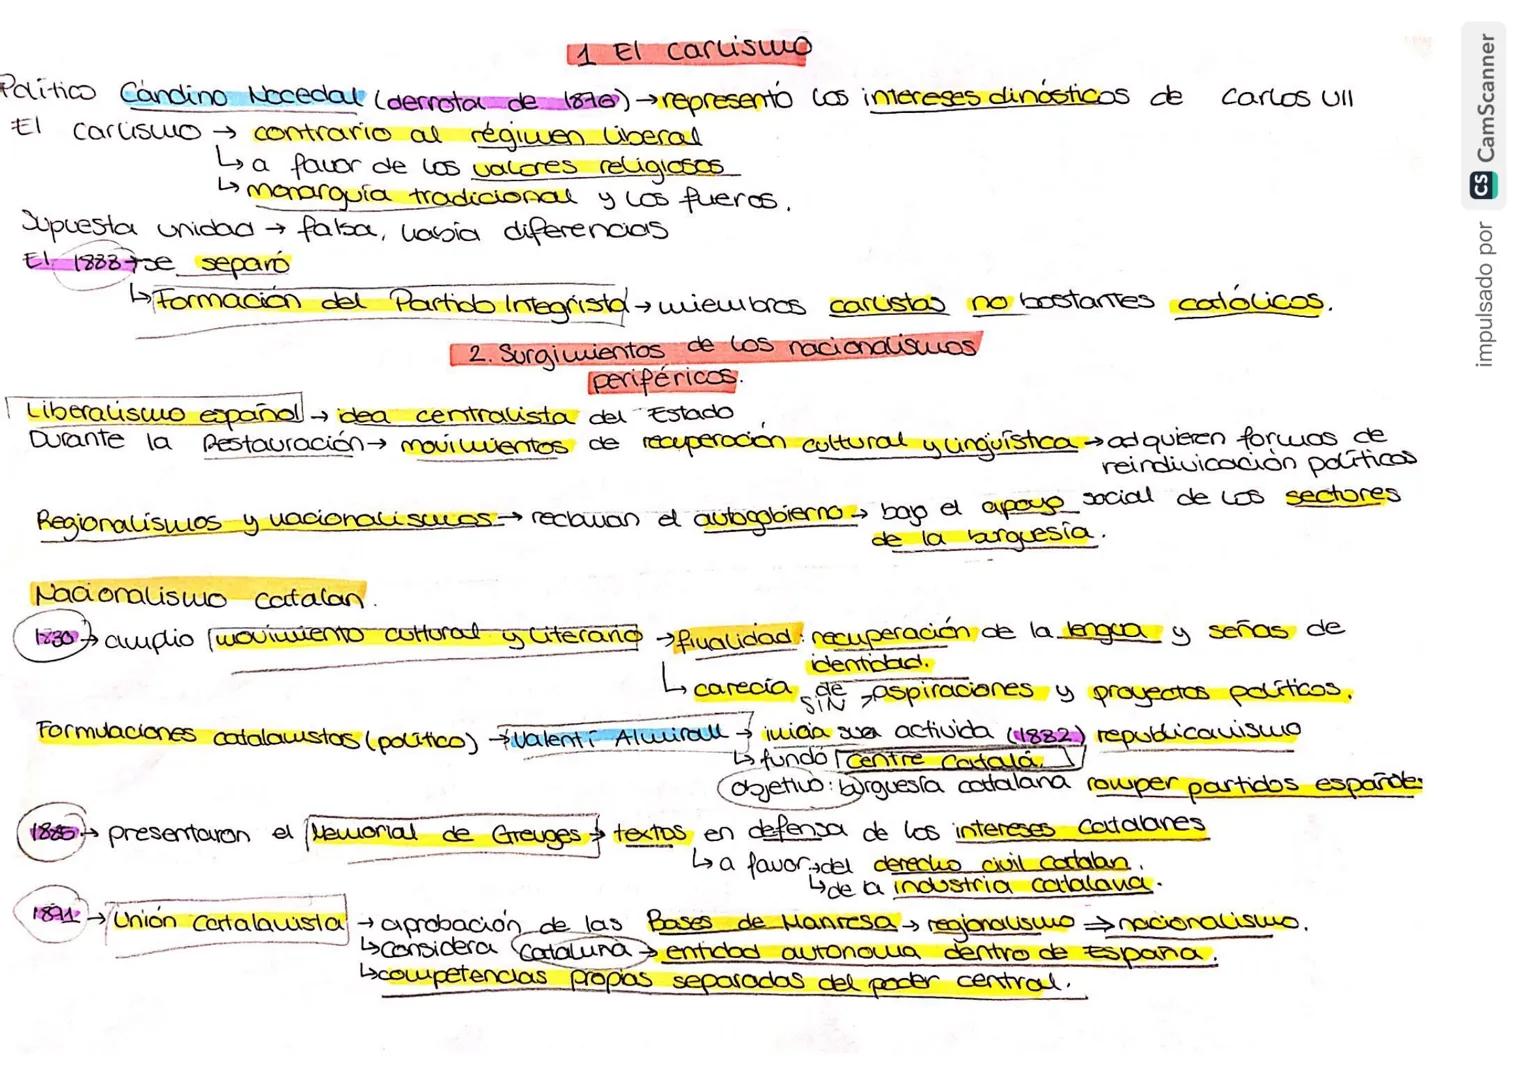 1 El Carlismo
Político Cándino Nocedal (derrota de 1876) → representó los intereses dinásticos de Carlos VII
El carlismo → contrario al régimen liberal
↳ a favor de los valores religiosos
↳ monarquía tradicional y los fueros.
Supuesta unidad → falsa, había diferencias
El 1888 → se separó
↳ Formación del Partido Integrista → miembros carlistas no bastantes católicos.
2. Surgimientos de los nacionalismos
periféricos.
Liberalismo español → idea centralista del Estado
Durante la Restauración → movimientos de recuperación cultural y lingüística → adquieren formas de
reindivicación políticas
Regionalismos y nacionalismos → reclaman el autogobierno → bajo el apoyo social de los sectores
de la burguesía.
Nacionalismo catalan.
1830 → amplio movimiento cultural y literario → finalidad: recuperación de la lengua y señas de
identidad.
↳ carecía de aspiraciones y proyectos políticos.
SIN
Formulaciones catalanistas (político) → Valentí Almirall → inicia su activida (1882) republicanismo
↳ fundó Centre Catalá.
objetivo: burguesía catalana romper partidos españoles
1885 → presentaron el Memorial de Greuges → textos en defensa de los intereses catalanes
↳ a favor → del derecho civil catalan.
↳ de la industria catalana.
1891 → Unión Catalanista → aprobación de las Bases de Manresa → regionalismo ⇒ nacionalismo.
↳ considera Cataluna → entidad autonoma dentro de España.
↳ competencias propias separadas del poder central.
impulsado por CS CamScanner